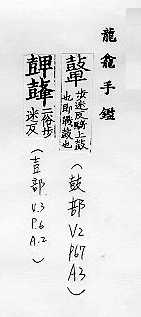 龍龕手鑑
鼙步迷反騎上鼓
也即鞞鼓也
(鼓部 V2 P67 A3)
二俗步
迷反
(壴部 V.3 P.6 A.2)